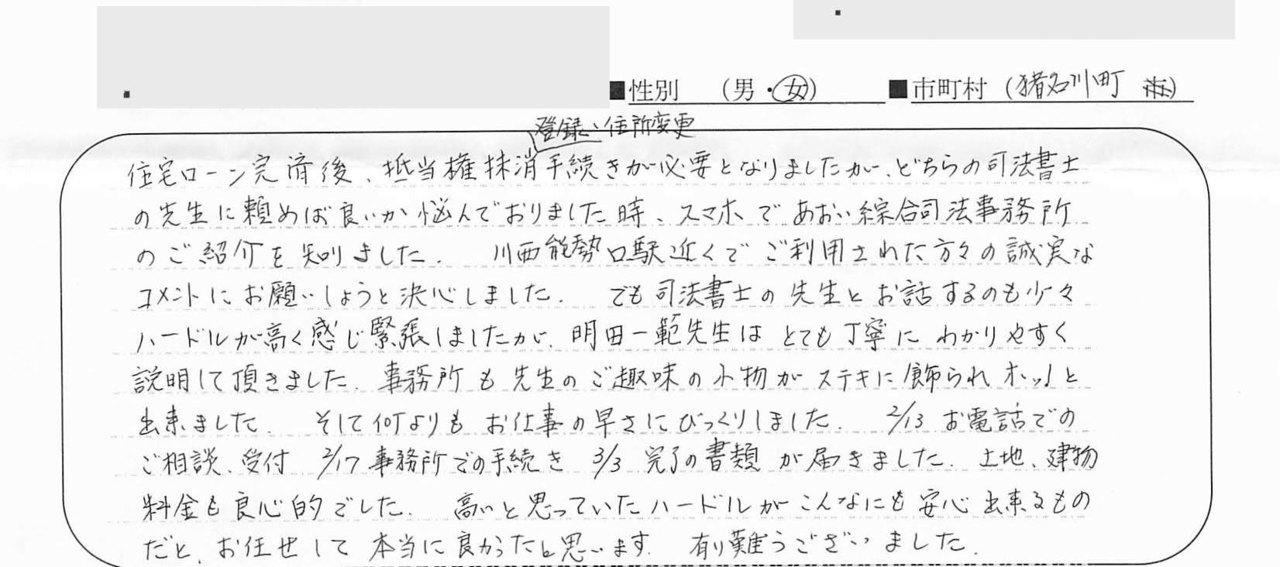 ■性別　（男・女）　■市町村（猪名川町）
登録、住所変更
住宅ローン完済後、抵当権抹消手続きが必要となりましたが、どちらの司法書士
の先生に頼めば良いか悩んでおりました時、スマホであおい綜合司法事務所
のご紹介を知りました。　川西能勢口駅近くでご利用された方々の誠実な
コメントにお願いしようと決心しました。　でも司法書士の先生とお話するのも少々
ハードルが高く感じ緊張しましたが、明田一範先生はとても丁寧にわかりやすく
説明して頂きました。事務所も先生のご趣味の小物がステキに飾られホッと
出来ました。　そして何よりもお仕事の早さにびっくりしました。　2/13 お電話での
ご相談、受付　2/17 事務所での手続き　3/3 完了の書類が届きました。土地、建物
料金も良心的でした。　高いと思っていたハードルがこんなにも安心出来るもの
だと、お任せして本当に良かったと思います。　有り難うございました。